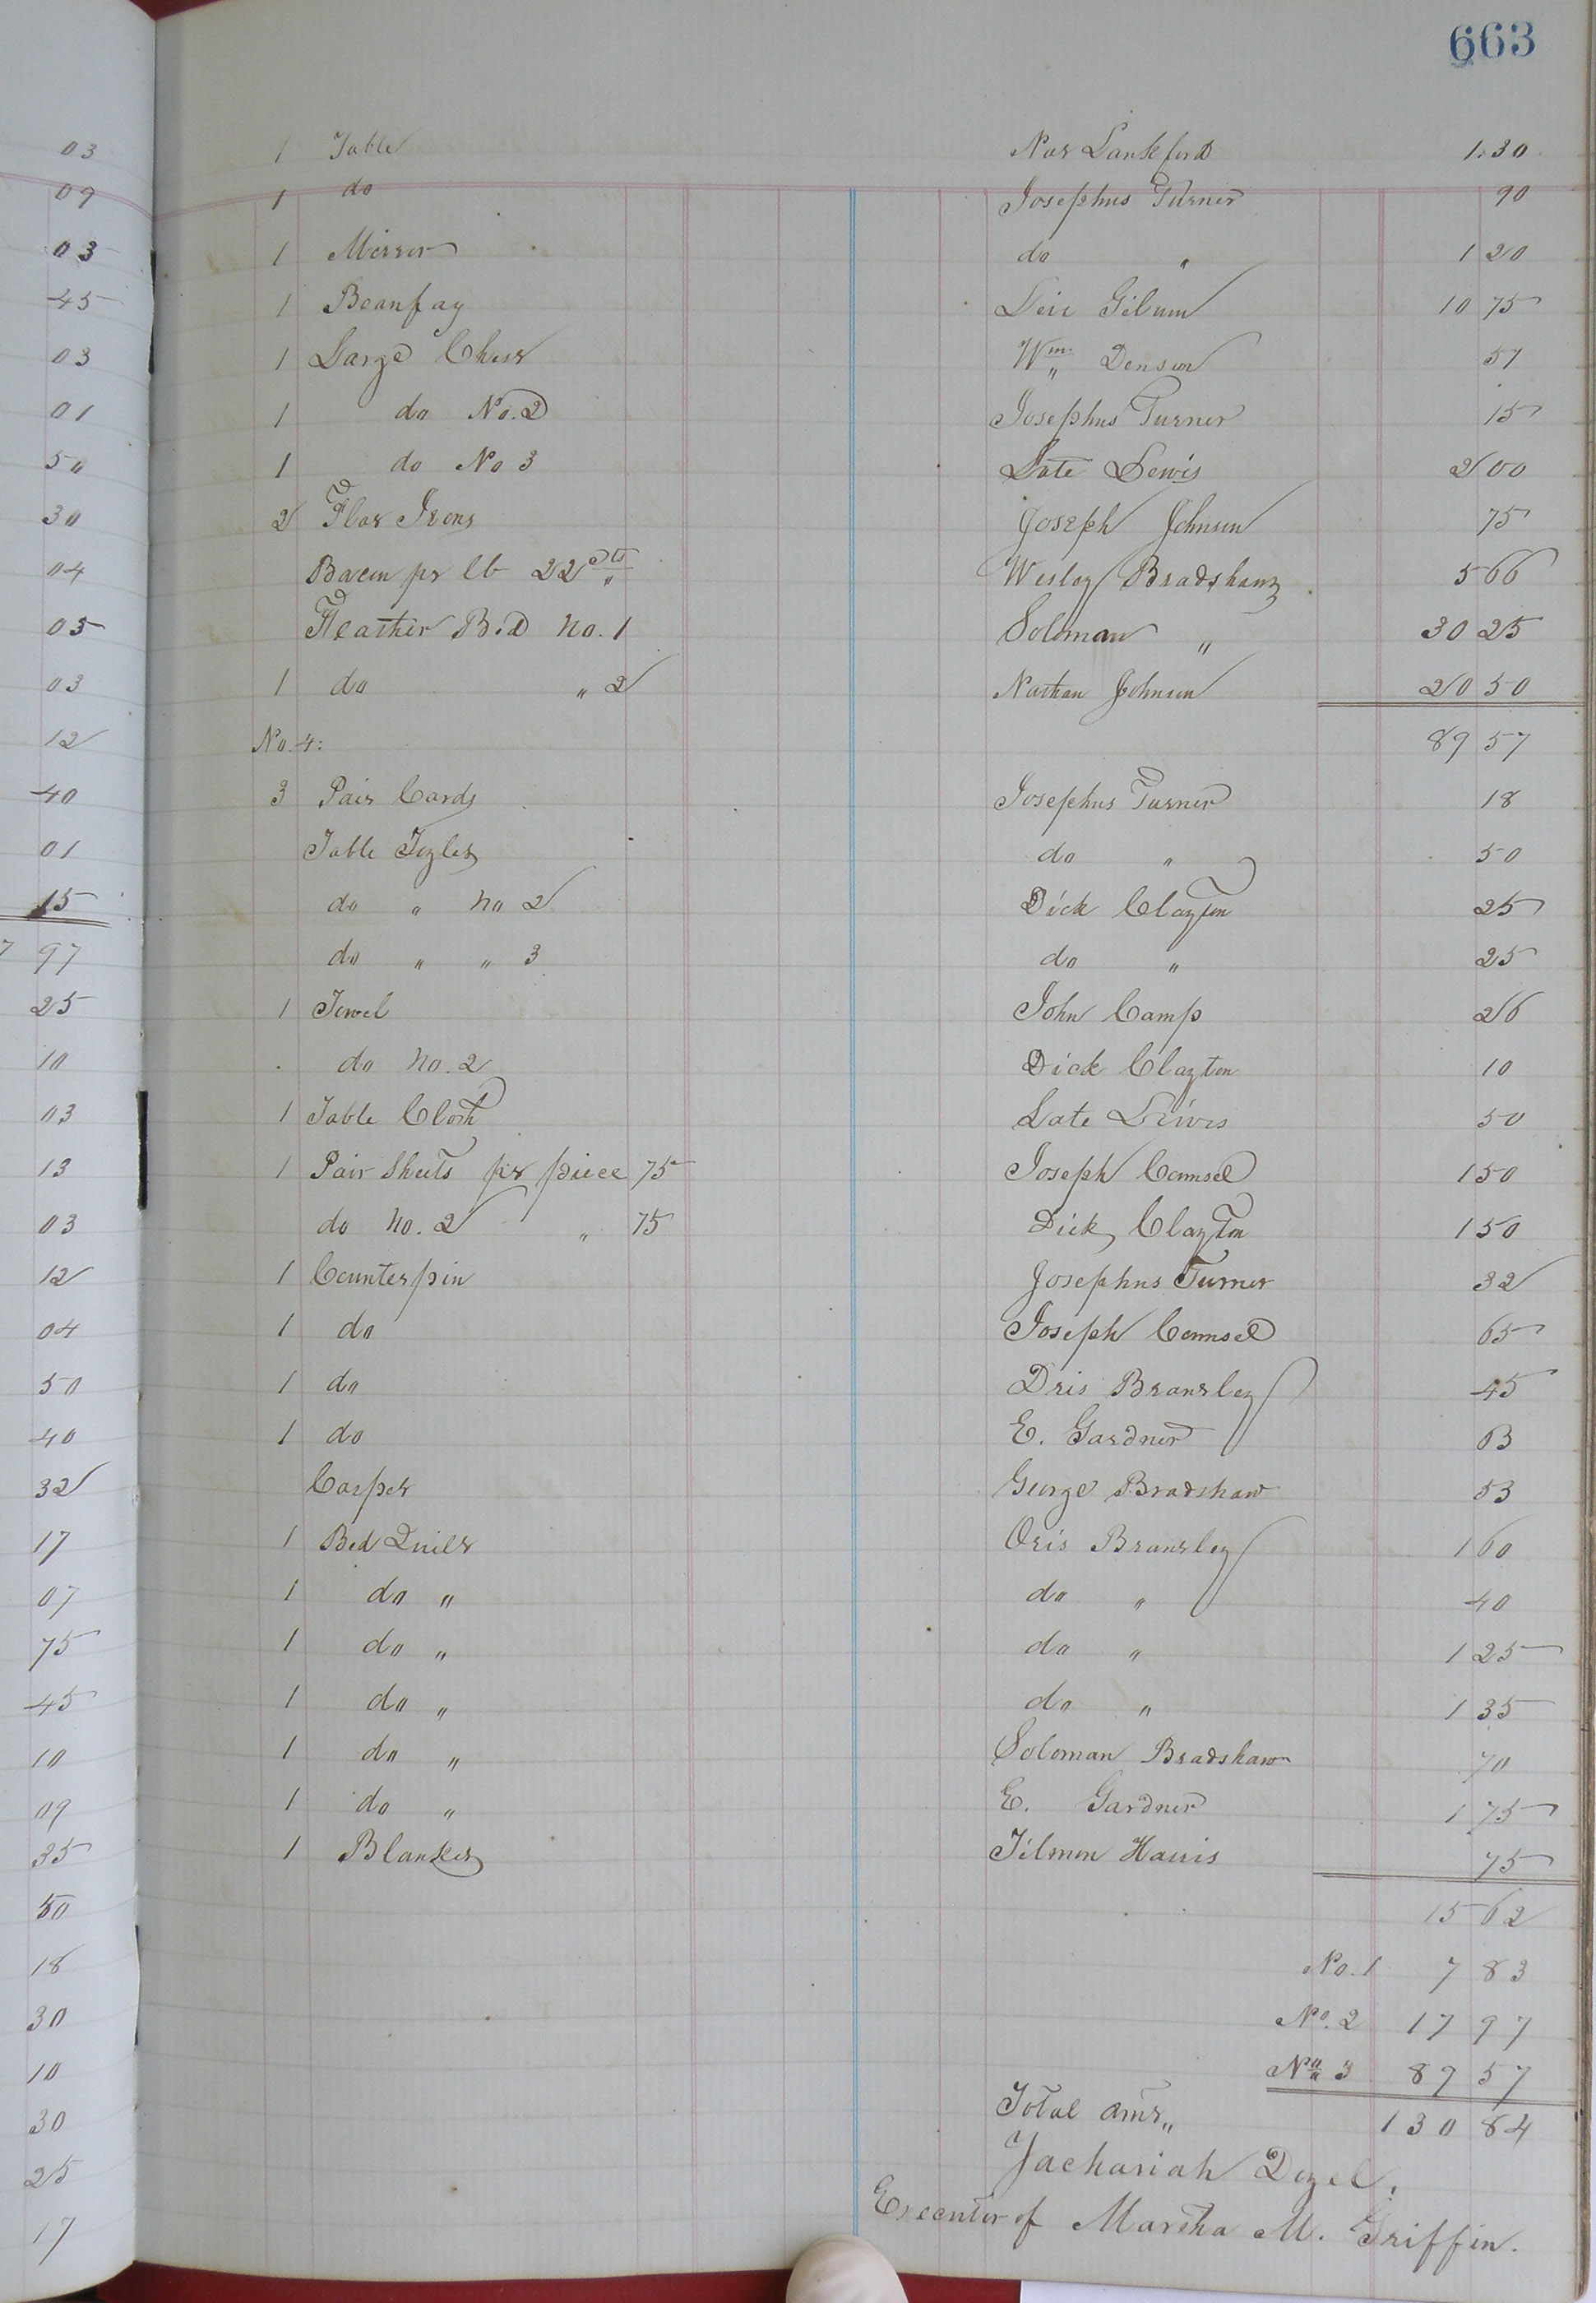 663
03
09
03
45
03
01
50
30
04
05
03
12
40
01
15
7 97
25
10
03
13
03
12
04
50
40
32
17
07
75
45
10
09
35
50
18
30
10
30
25
17
1 Table Nar Lankford 1.30
1 do Josephus Turner 90
1 Mirror do " 1 20
1 Beaufay Gilum 10 75
1 Large Chest Wm Denson 57
1 do No. 2 Josephus Turner 15
1 do No 3 Late Lewis 2 00
2 Flat Irons Joseph Johnson 75
Bacon pr lb 22 cts Wesley Bradshaw 5 66
Feather Bed No. 1 Soloman " 30 25
1 do " 2 Nathan Johnson 20 50
No. 4: 89 57
3 Pair Cards Josephus Turner 18
Table do " 50
do " No 2 Dick Clayton 25
do " " 3 do " 25
1 Towel John Camp 26
do No. 2 Dick Clayton 10
1 Table Cloth Late Lewis 50
1 Pair Sheets pr piece 75 Joseph Counsel 1 50
do No. 2 " 75 Dick Clayton 1 50
1 Counterpin Josephus Turner 32
1 do Joseph Counsel 65
1 do Bransley 45
1 do E. Gardner 63
Carpet George Bradshaw 53
1 Bed Quilt Oris Bransley 1 60
1 do " do " 40
1 do " do " 1 25
1 do " do " 1 35
1 do " Soloman Bradshaw 70
1 do " E. Gardner 1 75
1 Blanket Tilmon Harris 75
15 62
No. 1 7 83
No. 2 17 97
No 3 89 57
Total amt " 130 84
Zachariah Dezel.
Executor of Martha M. Griffin.